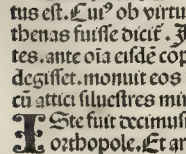 tus est. Cuiꝰ ob virtu
thenas fuisse dicit̃ - J
tes. ante oīa eisdē cop
degisset. monuit eos
cū attici siluestres mi
ISte fuit decimus
orthopole. Et an